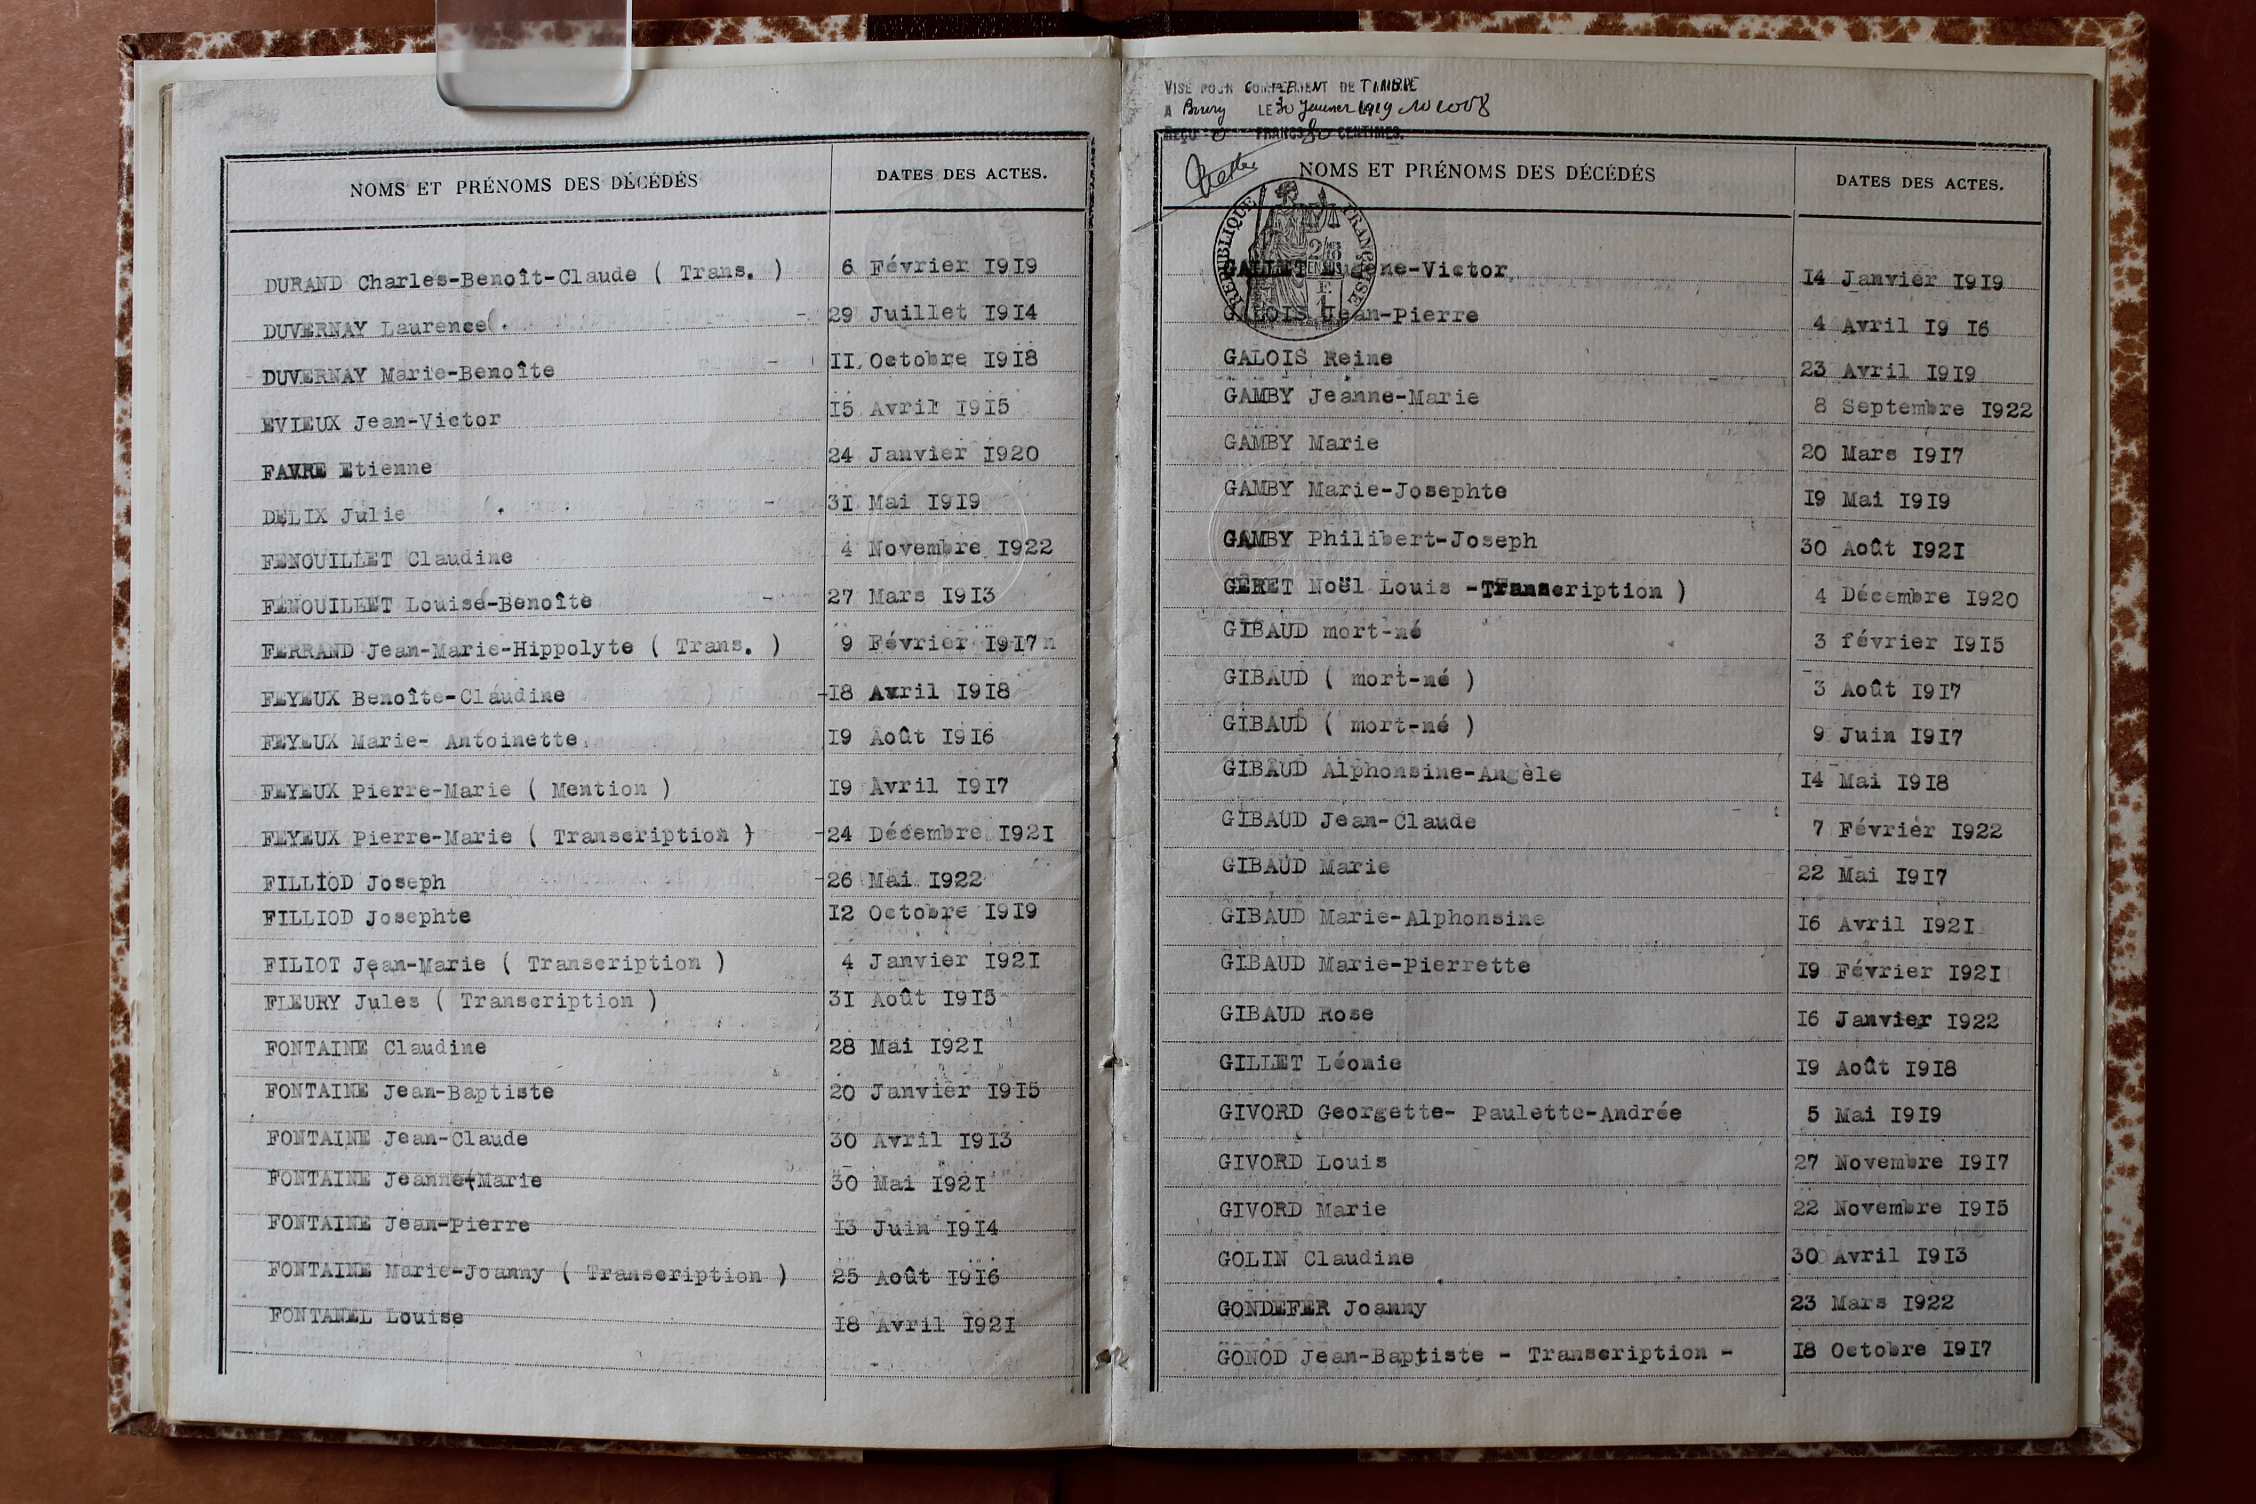 NOMS ET PRÉNOMS DES DÉCÉDÉS DATES DES ACTES.
DURAND Charles-Benoît-Claude ( Trans. ) 6 Février 1919
DUVERNAY Laurence . 29 Juillet 1914
DUVERNAY Marie-Benoîte 11 Octobre 1918
EVIEUX Jean-Victor 15 Avril 1915
FAVRE Etienne 24 Janvier 1920
DELIX Julie 31 Mai 1919
FENOUILLET Claudine 4 Novembre 1922
FENOUILLET Louise-Benoîte 27 Mars 1913
FERRAND Jean-Marie-Hippolyte ( Trans. ) 9 Février 1917
FEYEUX Benoîte-Claudine 18 Avril 1918
FEYEUX Marie- Antoinette 19 Août 1916
FEYEUX Pierre-Marie ( Mention ) 19 Avril 1917
FEYEUX Pierre-Marie ( Transcription ) 24 Décembre 1921
FILLIOD Joseph 26 Mai 1922
FILLIOD Josephte 12 Octobre 1919
FILIOT Jean-Marie ( Transcription ) 4 Janvier 1921
FLEURY Jules ( Transcription ) 31 Août 1915
FONTAINE Claudine 28 Mai 1921
FONTAINE Jean-Baptiste 20 Janvier 1915
FONTAINE Jean-Claude 30 Avril 1913
FONTAINE Jeanne-Marie 30 Mai 1921
FONTAINE Jean-Pierre 13 Juin 1914
FONTAINE Marie-Joanny ( Transcription ) 25 Août 1916
FONTANEL Louise 18 Avril 1921
VISÉ POUR COMPLÉMENT DE TIMBRE
A LE 30 Janvier 1919
REÇU FRANCS CENTIMES.
NOMS ET PRÉNOMS DES DÉCÉDÉS DATES DES ACTES.
RÉPUBLIQUE FRANÇAISE
GALLET Eugène-Victor 14 Janvier 1919
GALOIS Jean-Pierre 4 Avril 19 16
GALOIS Reine 23 Avril 1919
GAMBY Jeanne-Marie 8 Septembre 1922
GAMBY Marie 20 Mars 1917
GAMBY Marie-Josephte 19 Mai 1919
GAMBY Philibert-Joseph 30 Août 1921
GÉRET Noël Louis -Transcription ) 4 Décembre 1920
GIBAUD mort-né 3 février 1915
GIBAUD ( mort-né ) 3 Août 1917
GIBAUD ( mort-né ) 9 Juin 1917
GIBAUD Alphonsine-Angèle 14 Mai 1918
GIBAUD Jean-Claude 7 Février 1922
GIBAUD Marie 22 Mai 1917
GIBAUD Marie-Alphonsine 16 Avril 1921
GIBAUD Marie-Pierrette 19 Février 1921
GIBAUD Rose 16 Janvier 1922
GILLET Léonie 19 Août 1918
GIVORD Georgette- Paulette-Andrée 5 Mai 1919
GIVORD Louis 27 Novembre 1917
GIVORD Marie 22 Novembre 1915
GOLIN Claudine 30 Avril 1913
GONDEFER Joanny 23 Mars 1922
GONOD Jean-Baptiste - Transcription - 18 Octobre 1917